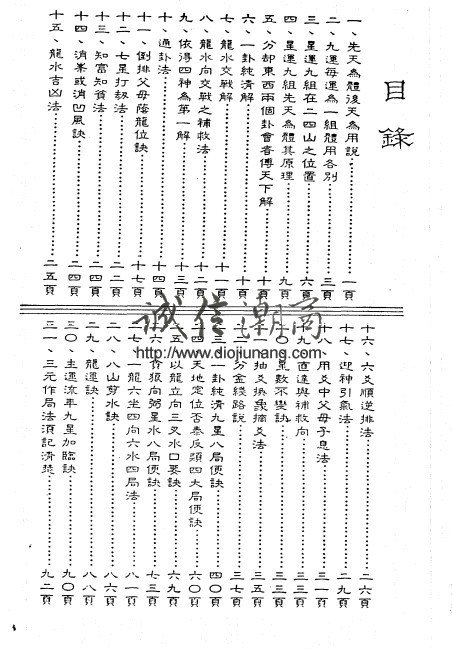 目錄
一、先天為體後天為用說……一頁
二、九運每運為一組體用各別……三頁
三、星運九組在二四山之位置……六頁
四、星運九組先天為體其原理……九頁
五、分却東西兩個卦會者傳天下解……十頁
六、一卦純清解……十頁
七、龍水交戰解……十一頁
八、龍水向交戰之補救法……十二頁
九、依得四神為第一解……十三頁
十、通卦法……十四頁
十一、倒排父母蔭龍位訣……十七頁
十二、七星打劫法……二二頁
十三、知富知貧法……二四頁
十四、消峯或消凹風訣……二四頁
十五、龍水吉凶法……二五頁
十六、六爻順逆排法……二六頁
十七、迎神引氣法……二九頁
十八、用爻中父母子息法……三一頁
直達與補救向……三三頁
星數不變訣……三三頁
抽爻換象摘爻法……三五頁
分金綫路說……三七頁
一卦純清九星八局便訣……四〇頁
天地定位否泰反類四大局便訣……六〇頁
以龍立向三叉水口要訣……六九頁
貪狼向弼星水八局便訣……七三頁
一龍六坐四向六水四局法……八一頁
二八、八山剪水訣……八六頁
二九、龍運訣……八八頁
三〇、主運流年九星加臨訣……九〇頁
三一、三元作局法須記清楚……九二頁
誠信潮商
http://www.diojunang.com